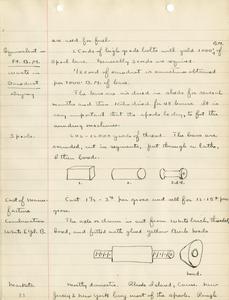 are used for fuel.
B.M.
Equivalent in
Ft. B. M.
2 Cords of high grade bolts will yield 1000'
of spool bars. Generally 3 cords are required.
Waste in
Sawdust
1/2 cord of sawdust is sometimes obtained
per 1000' B.M. of bars.
Drying
The bars are air dried in sheds for several
months and then kiln dried for 48 hours. It is
very important that the spools be dry, to fit the
winding machines.
Spools.
200 - 12000 yards of thread. The bars are
rounded, cut in segments, put through a lathe,
& then bored.
1.
2.
3 & 4.
Cost of Manu-
facture
gross.
Construction
The axle is drawn or cut from White birch, threaded
bored, and fitted with glued yellow birch heads
White & Y. B.
head.
Markets
Mostly domestic. Rhode Island, Conn., New
Jersey & New York buy most of the spools. Rough